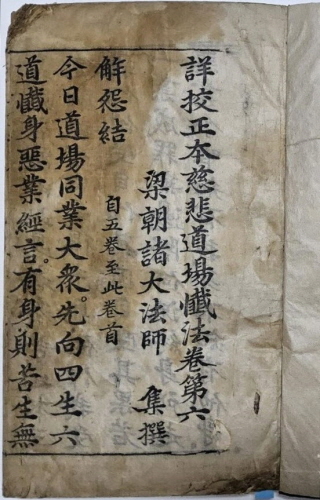 詳挍正本慈悲道場懺法卷第六
梁朝諸大法師 集撰
解怨結 自五卷至此卷首
今日道場同業大衆。先向四生六
道懺身惡業經言。有身則苦生無